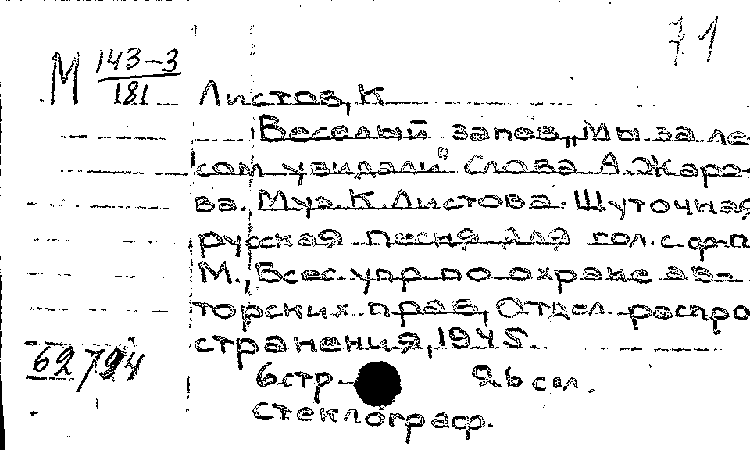 71
М 143-3
181
Листов, К
Веселый запев „Мы за ле-
сом увидали" Слова А. Жаро-
ва. Муз. К. Листова. Шуточная
русская песня для гол. с ф-п.
М., Всес. упр. по охране ав-
торских прав, Отдел распро
странения, 1945.
62794
6 стр
стеклограф.